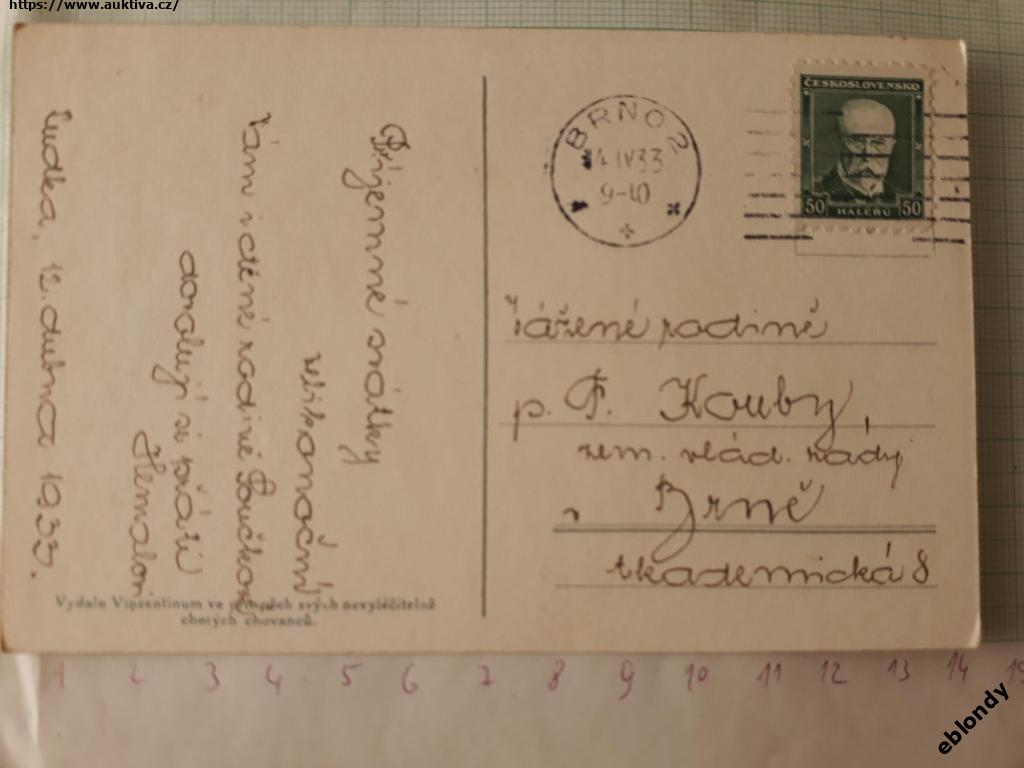 https://www.auktiva.cz/
Příjemné svátky
velikonoční
Vám i ctěné rodině
dovolují si
12. dubna 1933.
Vydalo Vincentinum ve prospěch svých nevyléčitelně
chorých chovanců.
BRNO 2
14 IV 33
9-10
ČESKOSLOVENSKO
50 HALÉŘŮ 50
Vážené rodině
p. F. Kouby,
zem. vlád. rády
v Brně
Akademická 8
1 2 3 4 5 6 7 8 9 10 11 12 13 14 15
eblondy